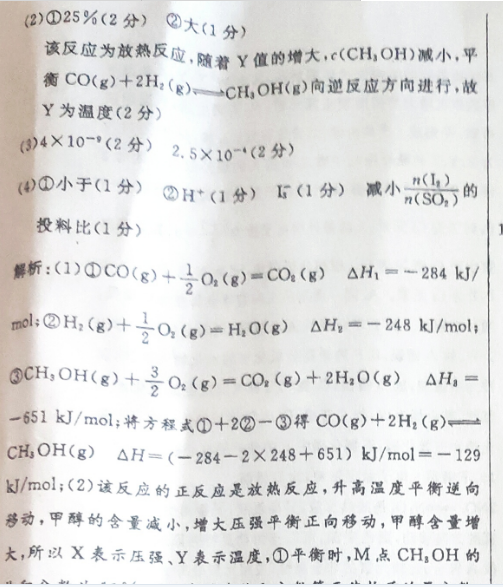 (2)①25%(2分) ②大(1分)
该反应为放热反应,随着 Y 值的增大,c(CH₃OH)减小,平
衡 CO(g)+2H₂(g)⇌CH₃OH(g)向逆反应方向进行,故
Y 为温度(2分)
(3)4×10⁻⁹(2分) 2.5×10⁻⁴(2分)
(4)①小于(1分) ②H⁺(1分) I₃⁻(1分) 减小 n(I₂)/n(SO₂) 的
投料比(1分)
解析:(1)①CO(g)+1/2 O₂(g)=CO₂(g) ΔH₁=-284 kJ/
mol;②H₂(g)+1/2 O₂(g)=H₂O(g) ΔH₂=-248 kJ/mol;
③CH₃OH(g)+3/2 O₂(g)=CO₂(g)+2H₂O(g) ΔH₃=
-651 kJ/mol;将方程式①+2②-③得 CO(g)+2H₂(g)⇌
CH₃OH(g) ΔH=(-284-2×248+651) kJ/mol=-129
kJ/mol;(2)该反应的正反应是放热反应,升高温度平衡逆向
移动,甲醇的含量减小,增大压强平衡正向移动,甲醇含量增
大,所以 X 表示压强、Y 表示温度,①平衡时,M 点 CH₃OH 的